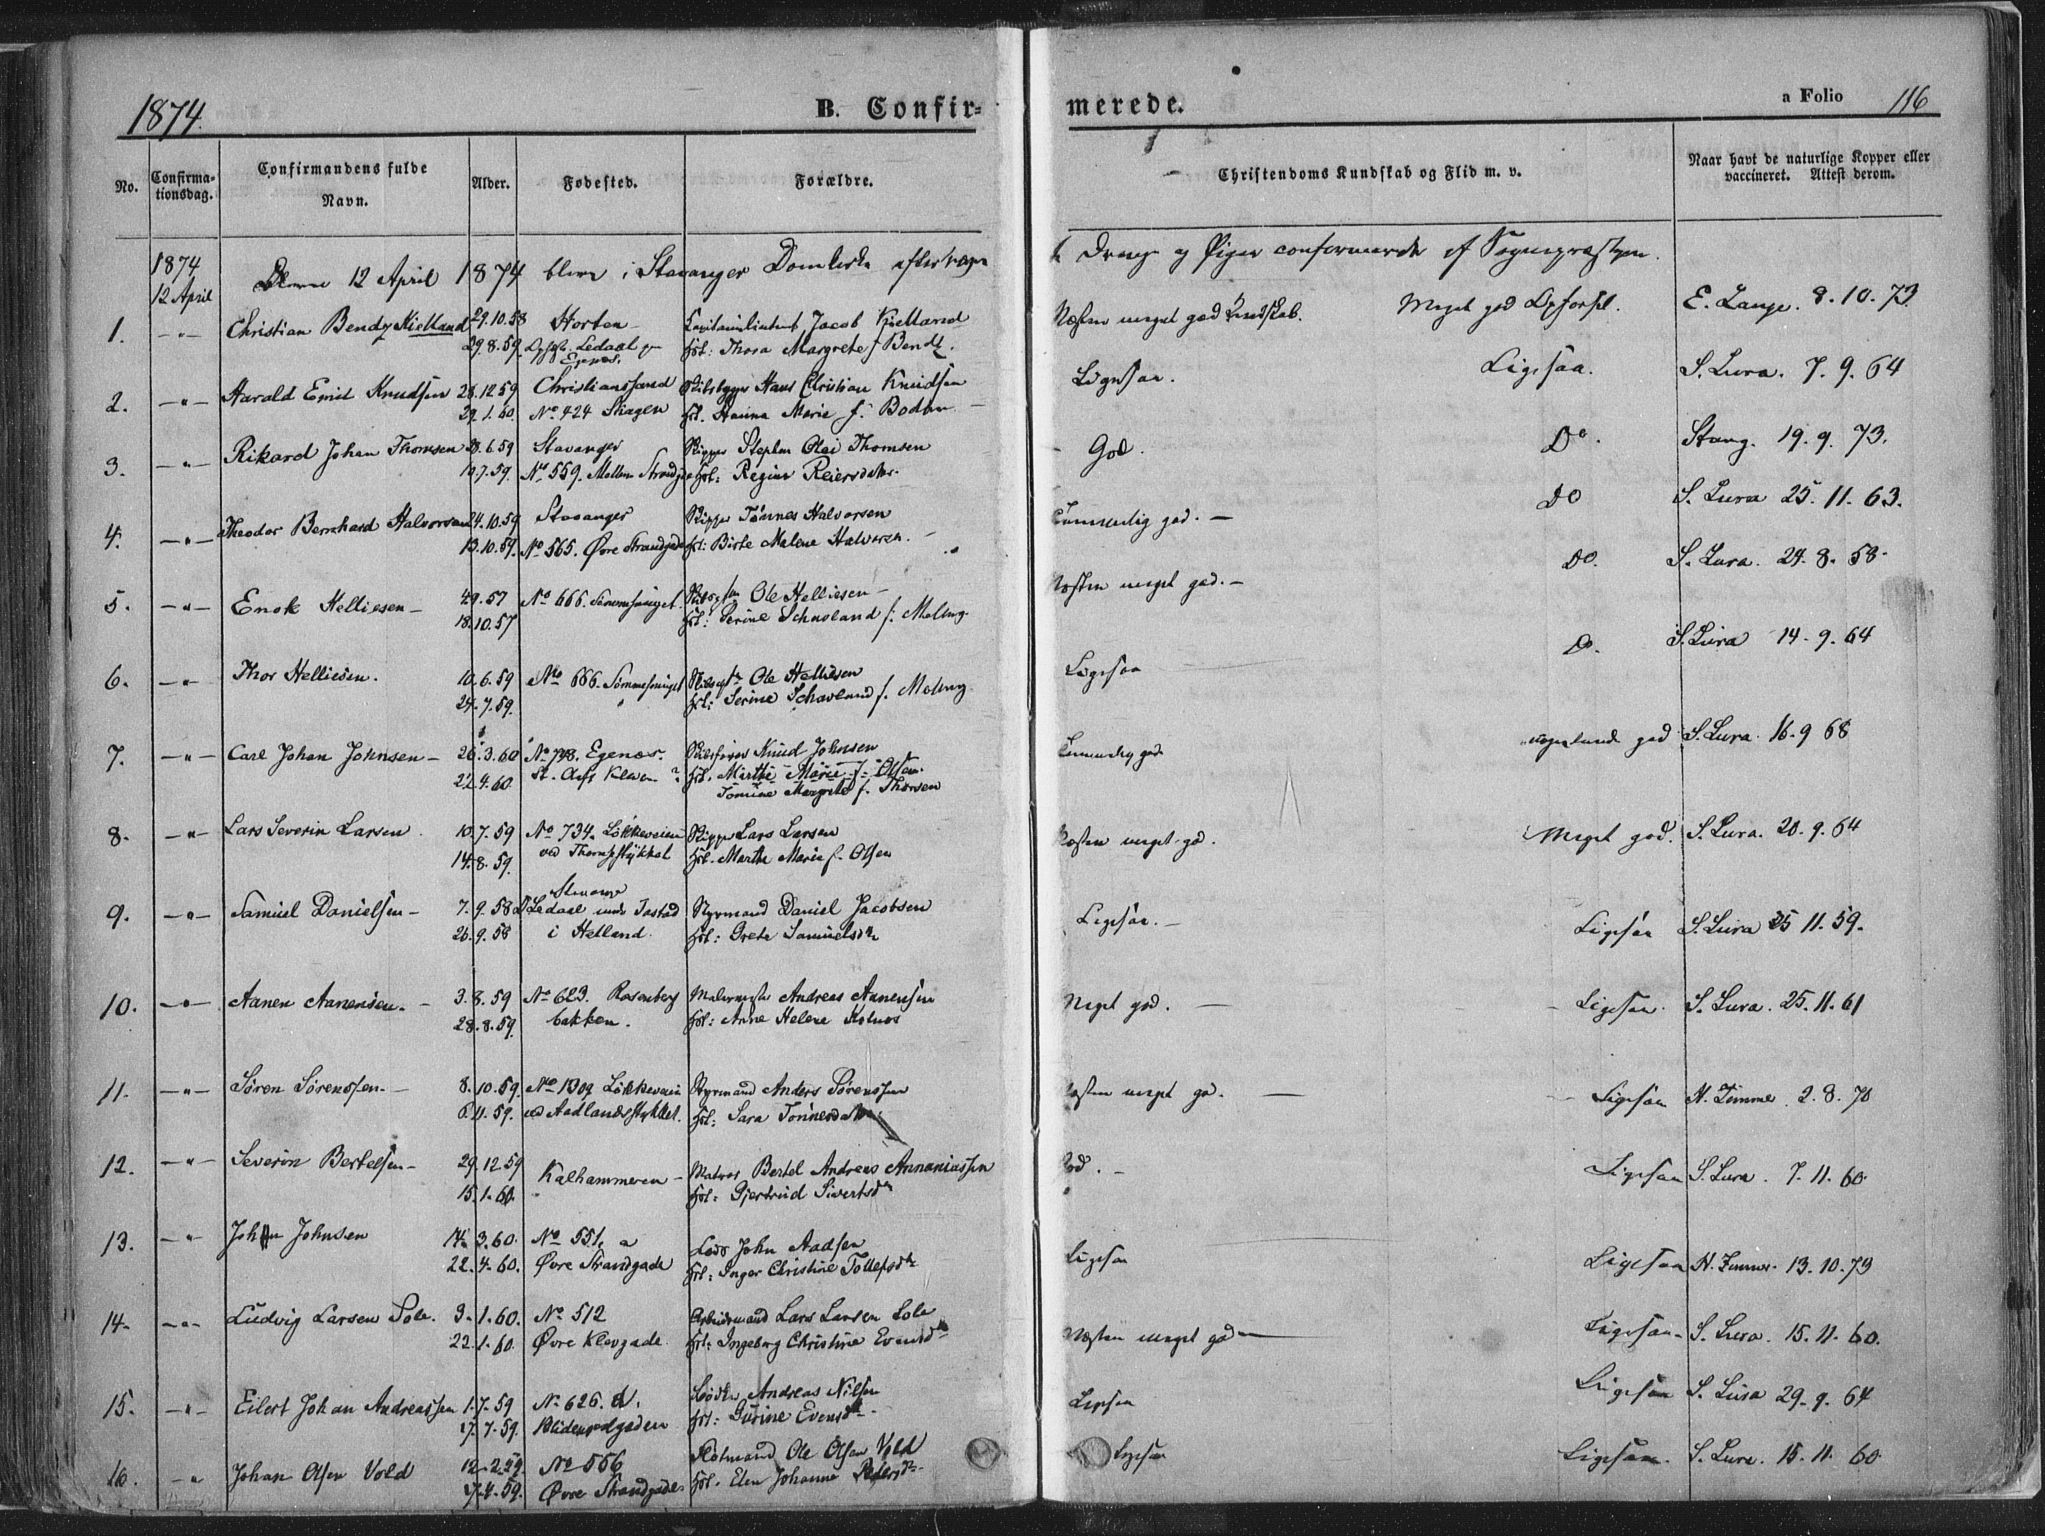 1874.
B. Confir-
merede.
a Folio 116
No.
Confirma-
tionsdag.
Confirmandens fulde
Navn.
Alder.
Fødested.
Forældre.
Christendoms Kundskab og Flid m. v.
Naar havt de naturlige Kopper eller
vaccineret. Attest derom.
1874
12 April
12 April 1874 bleve i Stavanger Domkirke
Drenge og Piger confirmerede af Sognepræsten.
1. —"— Christian Bendz Kielland 29.10.58 Horten Jacob Kielland Næsten meget god Kundskab. Meget god Opførsl. E. Lange. 8.10.73
29.8.59. Ledaal Egenæs. Hst: Thora Margrete f. Bendz.
2. —"— Harald Emil Knudsen 26.12.59 Christianssand Hans Christian Knudsen Ligesaa. Ligesaa. S. Lura. 7.9.64
29.1.60 No. 424 Skagen Hst. Hanna Marie f. Bodom
3. —"— Rikard Johan Thomsen 6.59 Stavanger Skipper Stephen Olai Thomsen God. Do. Stang. 19.9.73.
10.7.59. No. 559. Mellem Hst: Regine Reiersdatter.
4. —"— Theodor Bernhard Halvorsen 24.10.59 Stavanger Skipper Tønnes Halvorsen Temmelig god. — Do S. Lura 25.11.63.
13.10.59. No 565. Øvre Strandgade Hst: Birte Malene Halvorsen.
5. —"— Enok Helliesen — 4.9.57 No 666. Ole Helliesen — Næsten meget god. — Do. S. Lura. 24.8.58.
18.10.57 Hst: Serine f. Meling
6. —"— Thor Helliesen. 10.6.59 No 666. Ole Helliesen Ligesaa Do. S. Lura 14.9.64
24.7.59. Hst: Serine f. Meling
7. —"— Carl Johan Johnsen — 26.3.60 Egenæs. Knud Johnsen Temmelig god god S. Lura. 16.9.68
22.4.60 Hst. Marthe Marie f. Olsen.
Tomine Margrete f. Thorsen
8. —"— Lars Severin Larsen. 10.7.59 No 734. Løkkeveien Skipper Lars Larsen Næsten meget god. Meget god. S. Lura. 20.9.64
14.8.59. ved Hst. Marthe Marie f. Olsen
9. —"— Samuel Danielsen — 7.9.58 Ledaal under Tastad Styrmand Daniel Jacobsen Ligesaa. — Ligesaa S. Lura 25 11.59.
26.9.58 i Helland. Hst: Grete Samuelsdtr
10. —"— Aanen Aanensen. — 3.8.59 No 623. Rosenberg Andreas Aanensen Meget god. — Ligesaa. S. Lura. 25.11.61
28.8.59. bakken. Hst: Anne Helene
11. —"— Søren Sørenssen. — 8.10.59. Løkkeveien Styrmand Anders Sørenssen Næsten meget god. — Ligesaa H. Zimmer. 2.8.70
6.11.59. ved Aadlandsstykket. Hst: Sara Tonnesdatter
12. —"— Severin Bertelsen — 29.12.59 Kalhammeren — Matros Bertel Andreas Annaniassen God. — Ligesaa S. Lura. 7.11.60.
15.1.60. Hst: Gjertrud Sivertsdtr
13. —"— John Johnsen 14.3.60. No 551. a Lods John Aadsen Ligesaa Ligesaa H. Zimmer. 13.10.73
22.4.60. Øvre Strandgade Hst: Inger Christine Tollefsdtr
14. —"— Ludvig Larsen Sole. 3.1.60. No 512 Arbeidsmand Lars Larsen Sole Næsten meget god — Ligesaa. S. Lura. 15.11.60.
22.1.60. Øvre Klevgade. Hst: Ingeborg Christine Evensdtr
15. —"— Eilert Johan Andreassen 1.7.59 No. 626. Andreas Nilsen Ligesaa Ligesaa S. Lura 29.9.64
17.7.59. Blidensolgaden Hst: Gurine Evensdtr.
16. —"— Johan Olsen Vold 12.2.59. No 556 Ole Olsen Vold Ligesaa Ligesaa. S. Lura. 15.11.60
17.4.59. Øvre Strandgade. Hst. Elen Johanne Pedersdtr.